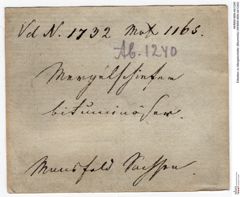 Vd N. 1732 Mat. 1165.
Ab. 1240
Mergelschiefer
bituminöser.
Mansfeld Sachsen.